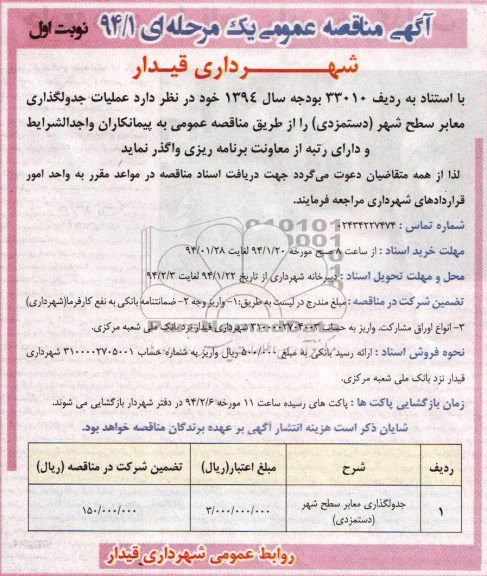 آگهی مناقصه عمومی یک مرحله ای ۹۴/۱ نوبت اول
شهرداری قیدار
با استناد به ردیف ۳۳۰۱۰ بودجه سال ۱۳۹۴ خود در نظر دارد عملیات جدولگذاری
معابر سطح شهر (دستمزدی) را از طریق مناقصه عمومی به پیمانکاران واجدالشرایط
و دارای رتبه از معاونت برنامه ریزی واگذر نماید
لذا از همه متقاضیان دعوت می‌گردد جهت دریافت اسناد مناقصه در مواعد مقرر به واحد امور
قراردادهای شهرداری مراجعه فرمایند.
شماره تماس : ۰۲۴۳۴۲۲۷۴۷۴
مهلت خرید اسناد : از ساعت ۸ صبح مورخه ۹۴/۱/۲۰ لغایت ۹۴/۰۱/۲۸
محل و مهلت تحویل اسناد : دبیرخانه شهرداری از تاریخ ۹۴/۱/۲۲ لغایت ۹۴/۲/۳
تضمین شرکت در مناقصه : مبلغ مندرج در لیست به طریق:۱- واریز وجه ۲- ضمانتنامه بانکی به نفع کارفرما(شهرداری)
۳- انواع اوراق مشارکت. واریز به حساب شهرداری قیدار نزد بانک ملی شعبه مرکزی.
نحوه فروش اسناد : ارائه رسید بانکی به مبلغ ۵۰۰/۰۰۰ ریال واریز به شماره حساب ۳۱۰۰۰۰۲۷۰۵۰۰۱ شهرداری
قیدار نزد بانک ملی شعبه مرکزی.
زمان بازگشایی پاکت ها : پاکت های رسیده ساعت ۱۱ مورخه ۹۴/۲/۶ در دفتر شهردار بازگشایی می شوند.
شایان ذکر است هزینه انتشار آگهی بر عهده برندگان مناقصه خواهد بود.
ردیف شرح مبلغ اعتبار(ریال) تضمین شرکت در مناقصه (ریال)
۱ جدولگذاری معابر سطح شهر ۳/۰۰۰/۰۰۰/۰۰۰ ۱۵۰/۰۰۰/۰۰۰
(دستمزدی)
روابط عمومی شهرداری قیدار